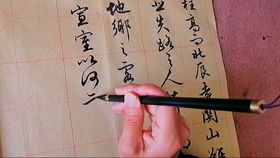 柱高而北辰遠關山難
悲失路之人
他鄉之客
宣室以何